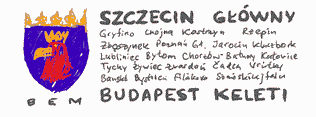 SZCZECIN GŁÓWNY
Gryfino Chojna Kostrzyn Rzepin
Zbąszynek Poznań Gł. Jarocin Kluczbork
Lubliniec Bytom Chorzów-Batory Katowice
Tychy Żywiec Zwardoń Čadca Vrútky
Banská Bystrica Fiľakovo Somoskőújfalu
BUDAPEST KELETI
BEM